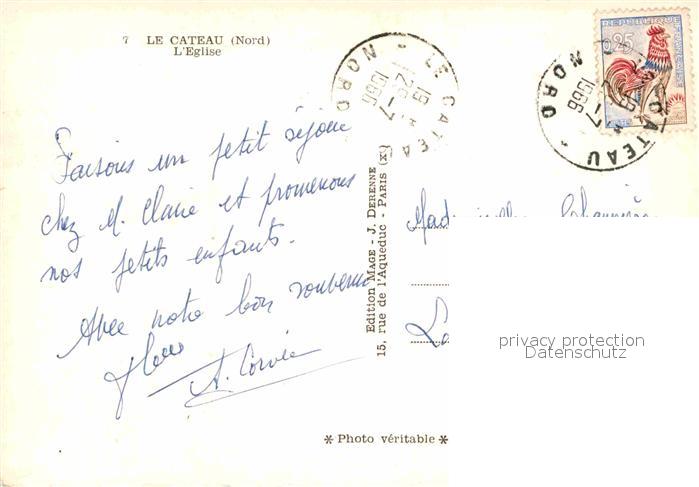 7 LE CATEAU (Nord)
L'Eglise
LE CATEAU
19 H
28-7
1966
NORD
REPUBLIQUE FRANCAISE
0,25
CATEAU
19
-7
1966
NORD
Faisons un petit séjour
chez M. Claire et promenons
nos petits enfants.
Avec notre bon souvenir
A.
Edition MAGE - J. DERENNE
15, rue de l'Aqueduc - PARIS (Xe)
Mademoiselle
privacy protection
Datenschutz
* Photo véritable *